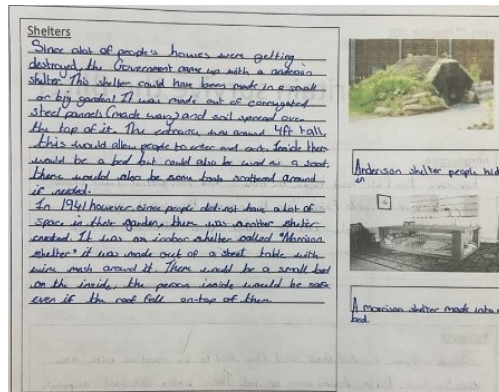 Shelters
Since alot of people's houses were getting
destroyed, the Government came up with a anderson
shelter. This shelter could have been made in a small
or big garden! It was made out of corrugated
steel pannels (made wavy) and soil spread over
the top of it. The entrance was around 4ft tall,
this would allow people to enter and exit. Inside there
would be a bed but could also be used as a seat,
there would also be some tools scattered around
if needed.
In 1941 however since people did not have a lot of
space in their garden, there was another shelter
created. It was an indoor shelter called "Morrison
shelter" it was made out of a steel table with
wire mesh around it. There would be a small bed
on the inside, the person inside would be safe
even if the roof fell on-top of them.
Anderson shelter people hid
in
A morrison shelter made into a
bed.